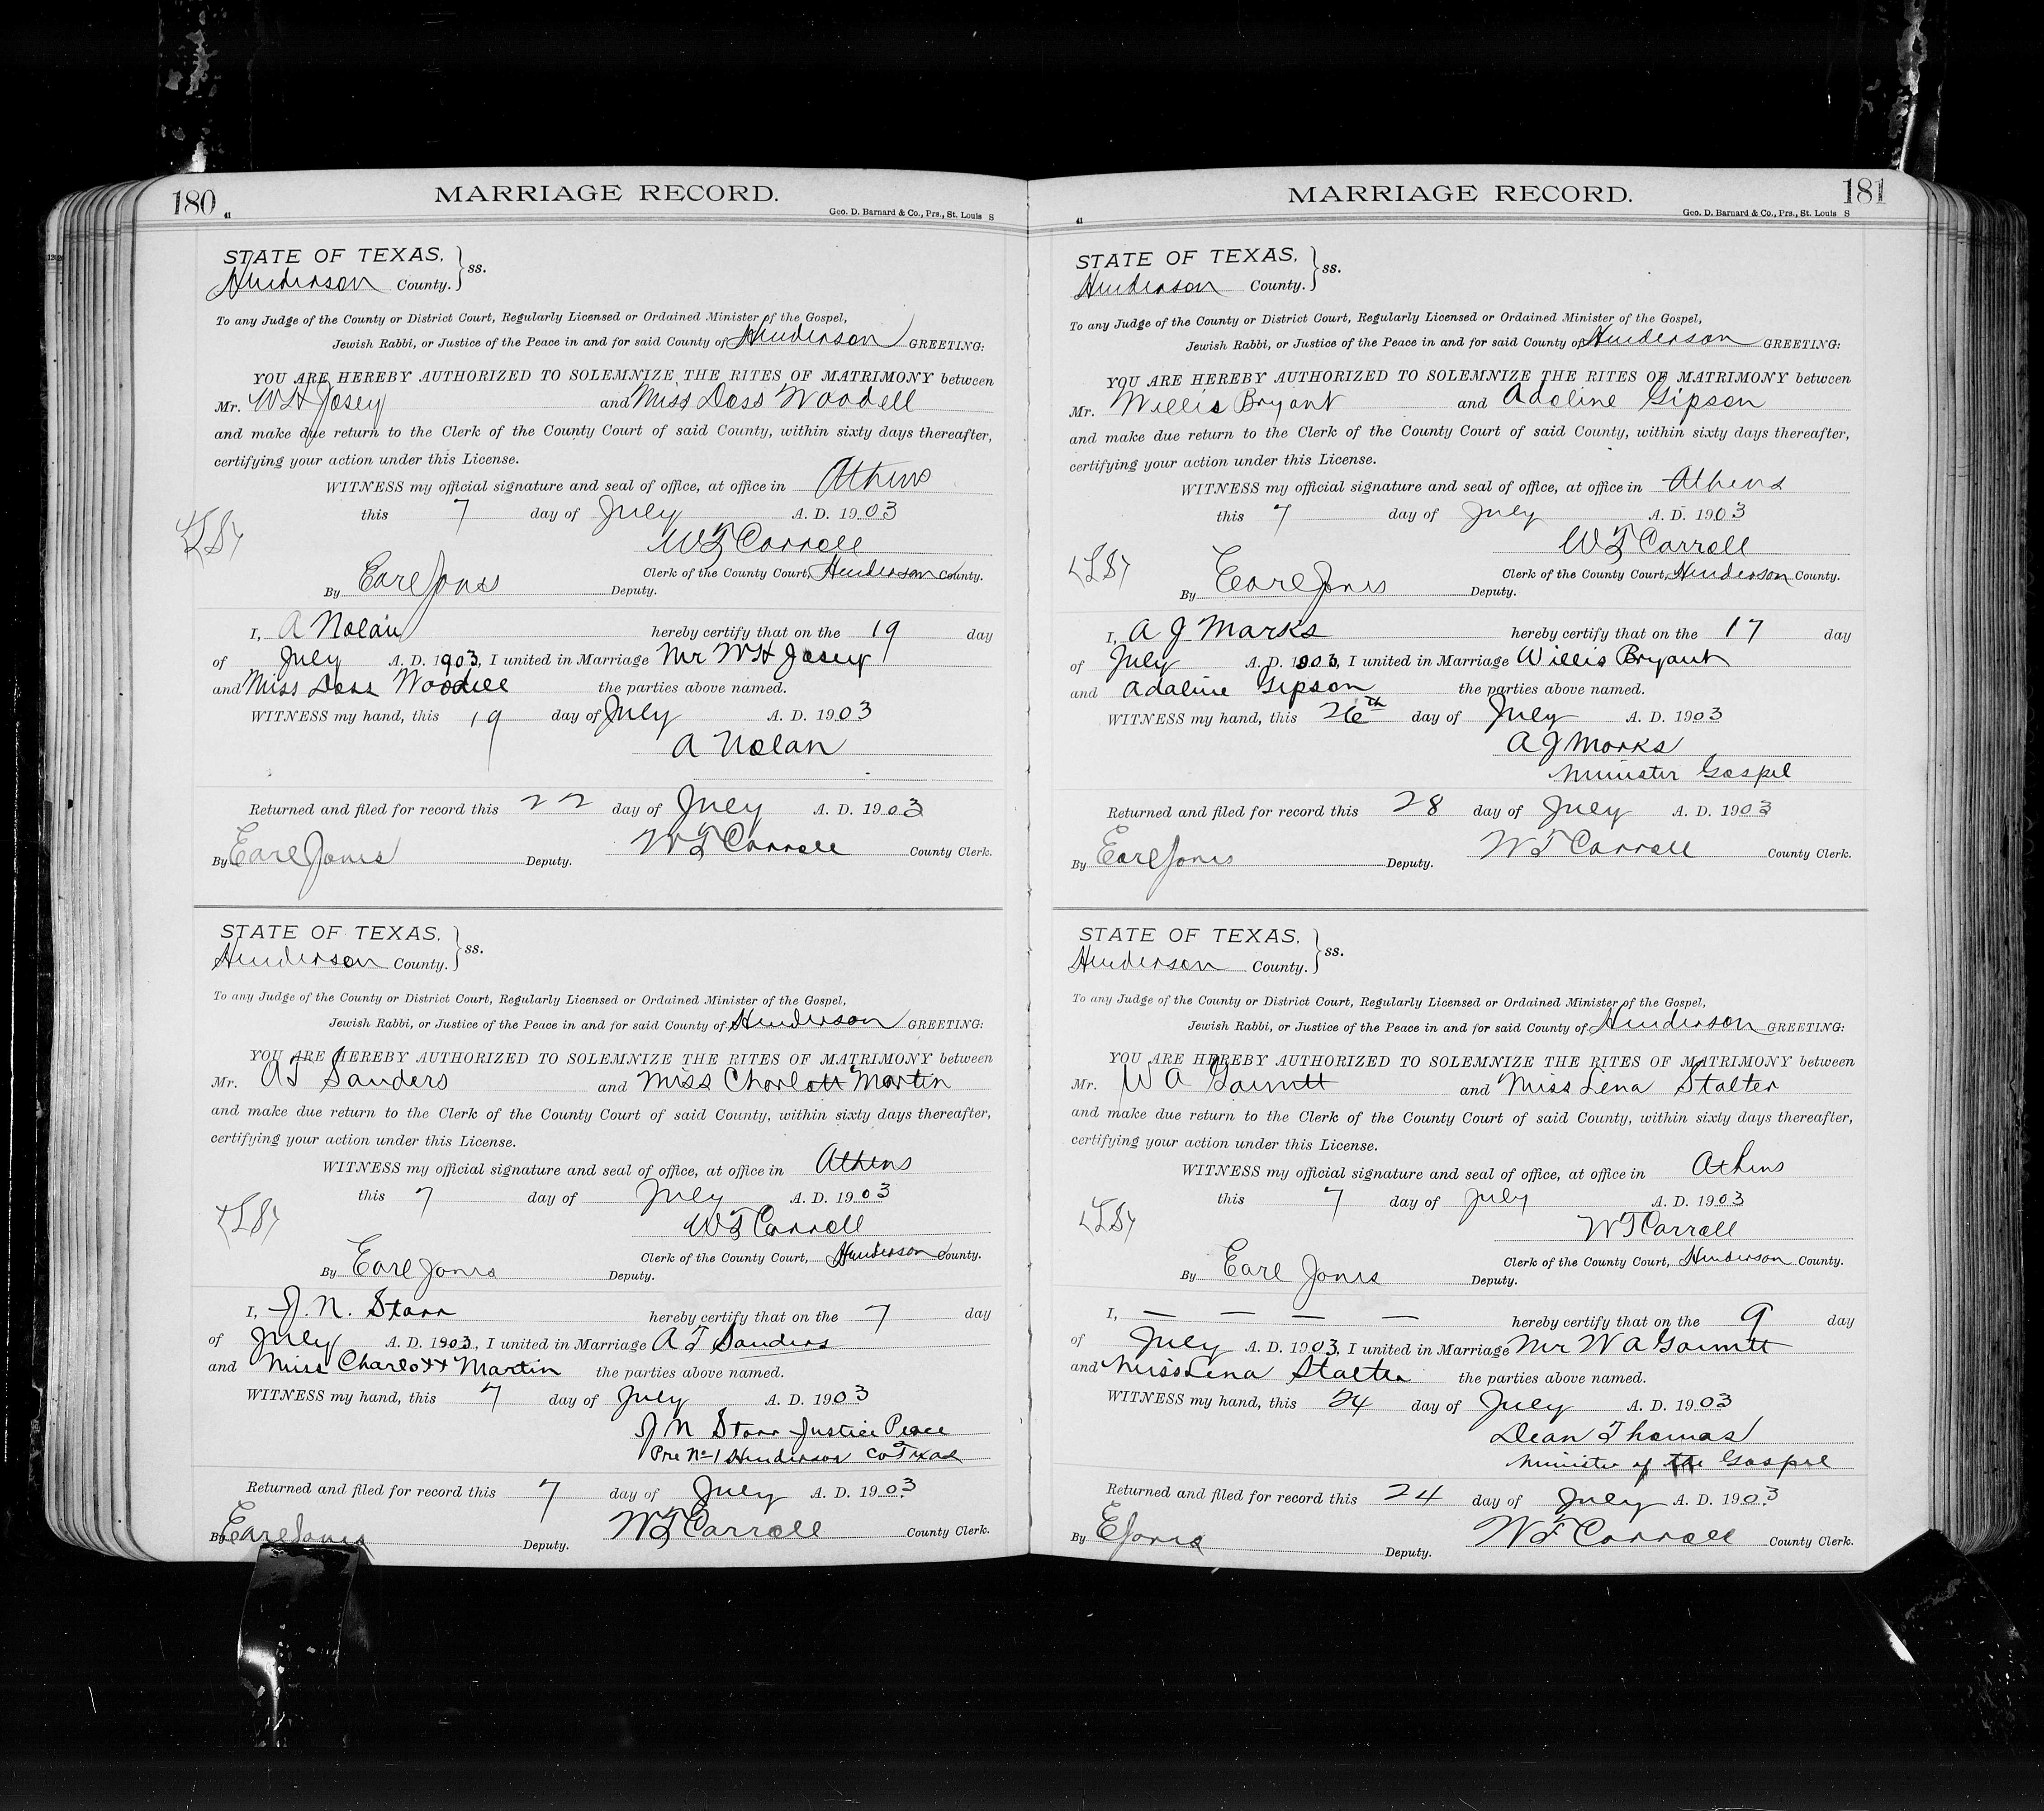 180
41
MARRIAGE RECORD.
Geo. D. Barnard & Co., Prs., St. Louis S
STATE OF TEXAS, } ss.
Henderson County.
To any Judge of the County or District Court, Regularly Licensed or Ordained Minister of the Gospel,
Jewish Rabbi, or Justice of the Peace in and for said County of Henderson GREETING:
YOU ARE HEREBY AUTHORIZED TO SOLEMNIZE THE RITES OF MATRIMONY between
Mr. W H Josey and Miss Doss Woodell
and make due return to the Clerk of the County Court of said County, within sixty days thereafter,
certifying your action under this License.
WITNESS my official signature and seal of office, at office in Athens
this 7 day of July A. D. 1903
LS
W T Carroll
Clerk of the County Court, Henderson County.
By Earl Jones Deputy.
I, A Nolan hereby certify that on the 19 day
of July A. D. 1903, I united in Marriage Mr W H Josey
and Miss Doss Woodell the parties above named.
WITNESS my hand, this 19 day of July A. D. 1903
A Nolan
Returned and filed for record this 22 day of July A. D. 1903
By Earl Jones Deputy. W T Carroll County Clerk.
STATE OF TEXAS, } ss.
Henderson County.
To any Judge of the County or District Court, Regularly Licensed or Ordained Minister of the Gospel,
Jewish Rabbi, or Justice of the Peace in and for said County of Henderson GREETING:
YOU ARE HEREBY AUTHORIZED TO SOLEMNIZE THE RITES OF MATRIMONY between
Mr. A T Sanders and Miss Charlott Martin
and make due return to the Clerk of the County Court of said County, within sixty days thereafter,
certifying your action under this License.
WITNESS my official signature and seal of office, at office in Athens
this 7 day of July A. D. 1903
LS
W T Carroll
Clerk of the County Court, Henderson County.
By Earl Jones Deputy.
I, J. N. Starr hereby certify that on the 7 day
of July A. D. 1903, I united in Marriage A T Sanders
and Miss Charlott Martin the parties above named.
WITNESS my hand, this 7 day of July A. D. 1903
J N Starr Justice Peace
Pre No 1 Henderson Co Texas
Returned and filed for record this 7 day of July A. D. 1903
By Earl Jones Deputy. W T Carroll County Clerk.
181
41
MARRIAGE RECORD.
Geo. D. Barnard & Co., Prs., St. Louis S
STATE OF TEXAS, } ss.
Henderson County.
To any Judge of the County or District Court, Regularly Licensed or Ordained Minister of the Gospel,
Jewish Rabbi, or Justice of the Peace in and for said County of Henderson GREETING:
YOU ARE HEREBY AUTHORIZED TO SOLEMNIZE THE RITES OF MATRIMONY between
Mr. Willis Bryant and Adaline Gipson
and make due return to the Clerk of the County Court of said County, within sixty days thereafter,
certifying your action under this License.
WITNESS my official signature and seal of office, at office in Athens
this 7 day of July A. D. 1903
LS
W T Carroll
Clerk of the County Court, Henderson County.
By Earl Jones Deputy.
I, A J Marks hereby certify that on the 17 day
of July A. D. 1903, I united in Marriage Willis Bryant
and Adaline Gipson the parties above named.
WITNESS my hand, this 26th day of July A. D. 1903
A J Marks
Minister Gospel
Returned and filed for record this 28 day of July A. D. 1903
By Earl Jones Deputy. W T Carroll County Clerk.
STATE OF TEXAS, } ss.
Henderson County.
To any Judge of the County or District Court, Regularly Licensed or Ordained Minister of the Gospel,
Jewish Rabbi, or Justice of the Peace in and for said County of Henderson GREETING:
YOU ARE HEREBY AUTHORIZED TO SOLEMNIZE THE RITES OF MATRIMONY between
Mr. W A and Miss Lena Stalter
and make due return to the Clerk of the County Court of said County, within sixty days thereafter,
certifying your action under this License.
WITNESS my official signature and seal of office, at office in Athens
this 7 day of July A. D. 1903
LS
W T Carroll
Clerk of the County Court, Henderson County.
By Earl Jones Deputy.
I, — — — — hereby certify that on the 9 day
of July A. D. 1903, I united in Marriage Mr W A
and Miss Lena Stalter the parties above named.
WITNESS my hand, this 24 day of July A. D. 1903
Dean Thomas
Minister of the Gospel
Returned and filed for record this 24 day of July A. D. 1903
By E Jones Deputy. W T Carroll County Clerk.